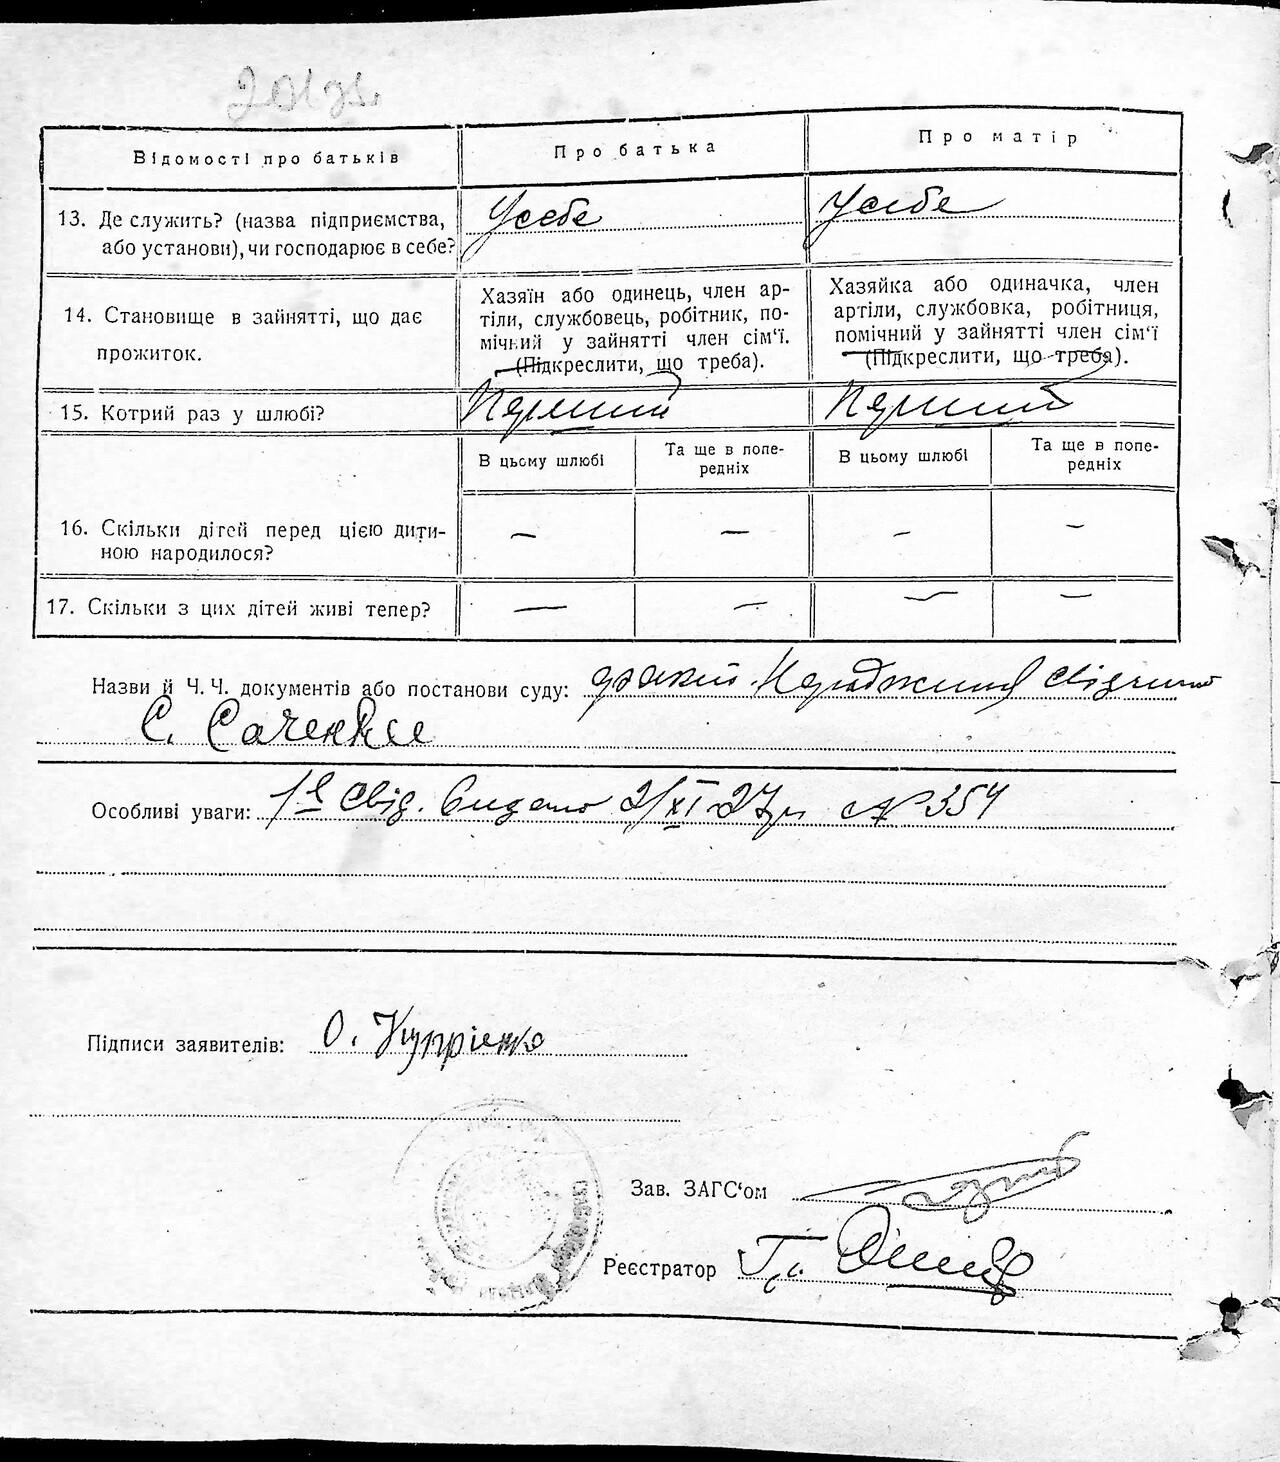 Відомості про батьків
Про батька
Про матір
13. Де служить? (назва підприємства, або установи), чи господарює в себе?
У себе
У себе
14. Становище в зайнятті, що дає прожиток.
Хазяїн або одинець, член ар-
тіли, службовець, робітник, по-
мічний у зайнятті член сім'ї.
(Підкреслити, що треба).
Хазяйка або одиначка, член
артіли, службовка, робітниця,
помічний у зайнятті член сім'ї
(Підкреслити, що треба).
15. Котрий раз у шлюбі?
Перший
Перший
В цьому шлюбі
Та ще в попе-
редніх
В цьому шлюбі
Та ще в попе-
редніх
16. Скільки дітей перед цією дити-
ною народилося?
— — — —
17. Скільки з цих дітей живі тепер?
— — — —
Назви й Ч. Ч. документів або постанови суду:
С. Саченки
Особливі уваги: Свід. Видано 2/XI-27 р № 354
Підписи заявителів: О. Купрієнко
Зав. ЗАГС'ом
Реєстратор